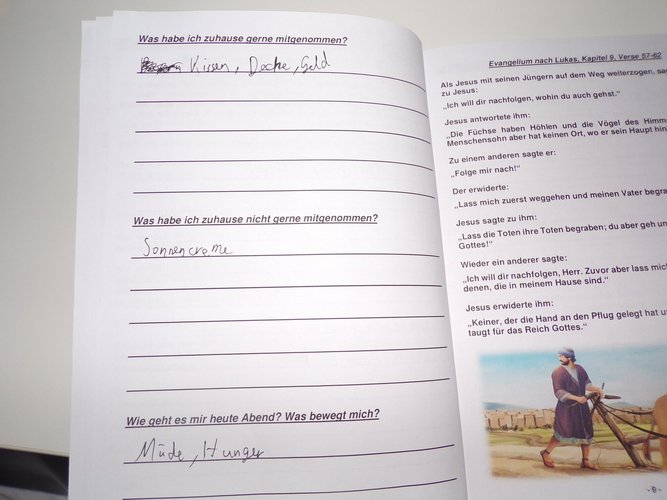 Was habe ich zuhause gerne mitgenommen?
Kissen, Decke, Geld
Was habe ich zuhause nicht gerne mitgenommen?
Sonnencreme
Wie geht es mir heute Abend? Was bewegt mich?
Müde, Hunger
Evangelium nach Lukas, Kapitel 9, Verse 57-62
Als Jesus mit seinen Jüngern auf dem Weg weiterzogen,
zu Jesus:
„Ich will dir nachfolgen, wohin du auch gehst.“
Jesus antwortete ihm:
„Die Füchse haben Höhlen und die Vögel des
Menschensohn aber hat keinen Ort, wo er sein Haupt
Zu einem anderen sagte er:
„Folge mir nach!“
Der erwiderte:
„Lass mich zuerst weggehen und meinen Vater
Jesus sagte zu ihm:
„Lass die Toten ihre Toten begraben; du aber geh
Gottes!“
Wieder ein anderer sagte:
„Ich will dir nachfolgen, Herr. Zuvor aber lass
denen, die in meinem Hause sind.“
Jesus erwiderte ihm:
„Keiner, der die Hand an den Pflug gelegt hat
taugt für das Reich Gottes.“